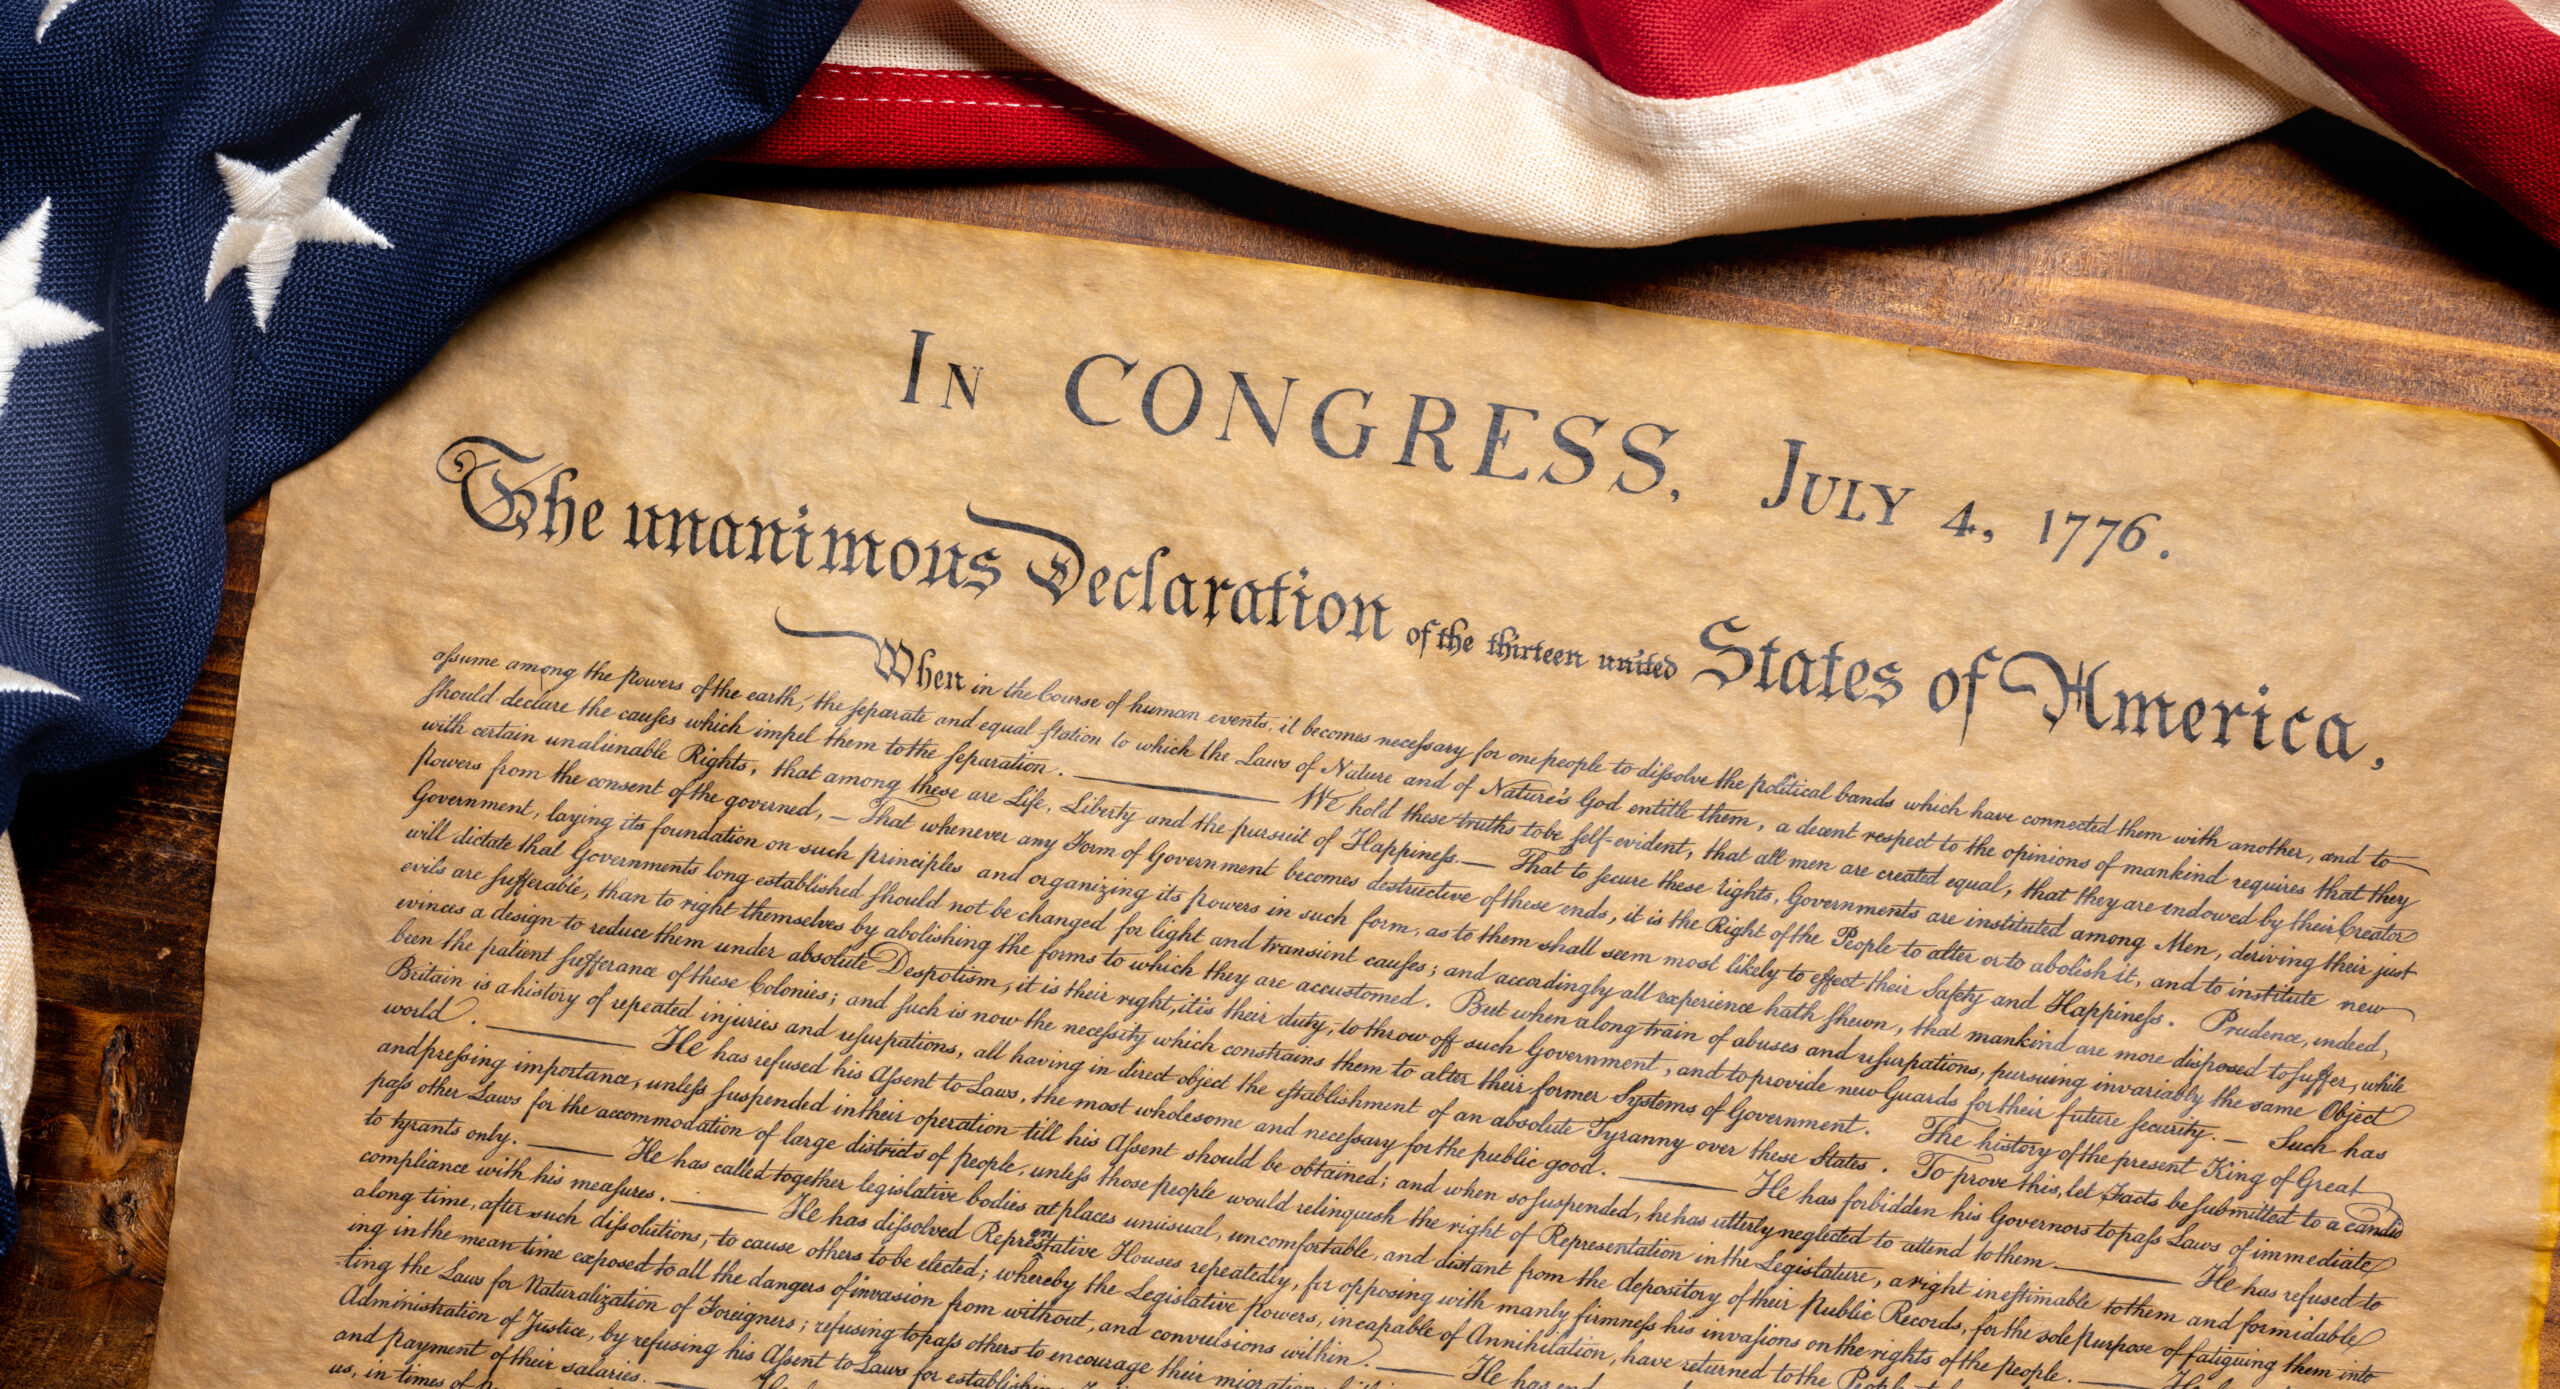 In CONGRESS, July 4, 1776.
The unanimous Declaration of the thirteen united States of America,
When in the Course of human events, it becomes necessary for one people to dissolve the political bands which have connected them with another, and to
assume among the powers of the earth, the separate and equal station to which the Laws of Nature and of Nature's God entitle them, a decent respect to the opinions of mankind requires that they
should declare the causes which impel them to the separation. — We hold these truths to be self-evident, that all men are created equal, that they are endowed by their Creator
with certain unalienable Rights, that among these are Life, Liberty and the pursuit of Happiness. — That to secure these rights, Governments are instituted among Men, deriving their just
powers from the consent of the governed, — That whenever any Form of Government becomes destructive of these ends, it is the Right of the People to alter or to abolish it, and to institute new
Government, laying its foundation on such principles and organizing its powers in such form, as to them shall seem most likely to effect their Safety and Happiness. Prudence, indeed,
will dictate that Governments long established should not be changed for light and transient causes; and accordingly all experience hath shewn, that mankind are more disposed to suffer, while
evils are sufferable, than to right themselves by abolishing the forms to which they are accustomed. But when a long train of abuses and usurpations, pursuing invariably the same Object
evinces a design to reduce them under absolute Despotism, it is their right, it is their duty, to throw off such Government, and to provide new Guards for their future security. — Such has
been the patient sufferance of these Colonies; and such is now the necessity which constrains them to alter their former Systems of Government. The history of the present King of Great
Britain is a history of repeated injuries and usurpations, all having in direct object the establishment of an absolute Tyranny over these States. To prove this, let Facts be submitted to a candid
world. — He has refused his Assent to Laws, the most wholesome and necessary for the public good. — He has forbidden his Governors to pass Laws of immediate
and pressing importance, unless suspended in their operation till his Assent should be obtained; and when so suspended, he has utterly neglected to attend to them. — He has refused to
pass other Laws for the accommodation of large districts of people, unless those people would relinquish the right of Representation in the Legislature, a right inestimable to them and formidable
to tyrants only. — He has called together legislative bodies at places unusual, uncomfortable, and distant from the depository of their public Records, for the sole purpose of fatiguing them into
compliance with his measures. — He has dissolved Representative Houses repeatedly, for opposing with manly firmness his invasions on the rights of the people. —
along time, after such dissolutions, to cause others to be elected; whereby the Legislative powers, incapable of Annihilation, have returned to the People
ing in the mean time exposed to all the dangers of invasion from without, and convulsions within. — He has
ting the Laws for Naturalization of Foreigners; refusing to pass others to encourage their
Administration of Justice, by refusing his Assent to Laws for
and payment of their salaries. —
us, in times of